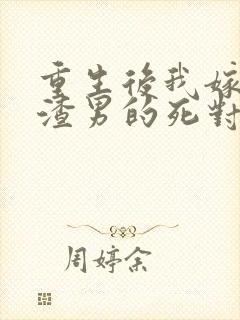 重生後我嫁
渣男的死對
周婷余